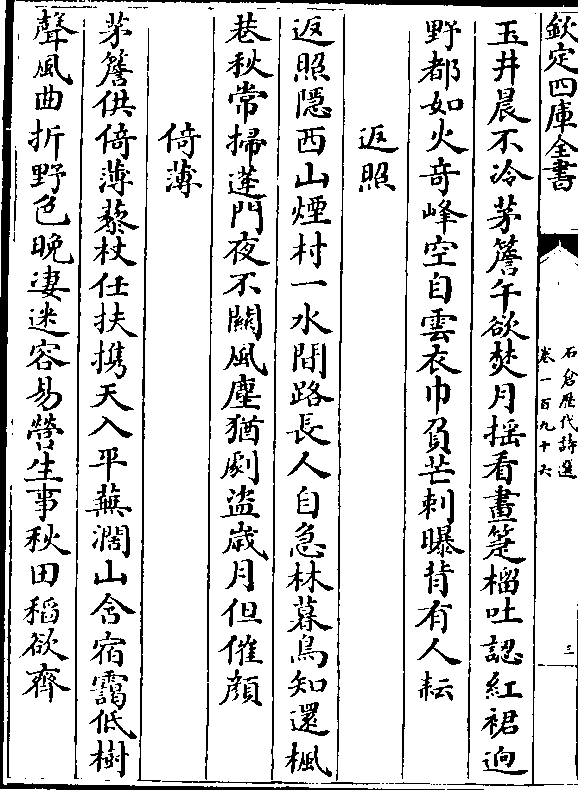 欽定四庫全書
石倉歷代詩選
卷一百九十六
三
玉井晨不冷茅簷午欲焚月搖看畫箑榴吐認紅裙逈
野都如火奇峰空自雲衣巾負芒刺曝背有人耘
返照
返照隱西山煙村一水間路長人自急林暮鳥知還楓
巷秋常掃蓬門夜不關風塵猶劇盜歲月但催顔
倚薄
茅簷供倚薄藜杖任扶攜天入平蕪濶山含宿靄低樹
聲風曲折野色晚凄迷容易營生事秋田稻欲齊